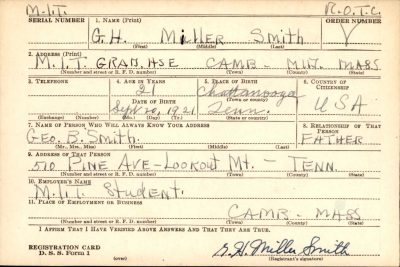 M.I.T. R.O.T.C.
SERIAL NUMBER 1. NAME (Print) ORDER NUMBER
G.H. Miller Smith
(First) (Middle) (Last)
2. ADDRESS (Print)
M.I.T. GRAD. HSE CAMB - MASS
(Number and street or R. F. D. number) (Town) (County) (State)
3. TELEPHONE 4. AGE IN YEARS 5. PLACE OF BIRTH 6. COUNTRY OF CITIZENSHIP
21 Chattanooga
DATE OF BIRTH (Town or county) USA
Sept 26, 1921 Tenn.
(Exchange) (Number) (Mo.) (Day) (Yr.) (State or country)
7. NAME OF PERSON WHO WILL ALWAYS KNOW YOUR ADDRESS 8. RELATIONSHIP OF THAT PERSON
GEO. B. Smith. FATHER
(Mr., Mrs., Miss) (First) (Middle) (Last)
9. ADDRESS OF THAT PERSON
510 PINE AVE - LOOKOUT MT. - TENN.
(Number and street or R. F. D. number) (Town) (County) (State)
10. EMPLOYER'S NAME
M.I.T. Student.
11. PLACE OF EMPLOYMENT OR BUSINESS
CAMB - MASS
(Number and street or R. F. D. number) (Town) (County) (State)
I AFFIRM THAT I HAVE VERIFIED ABOVE ANSWERS AND THAT THEY ARE TRUE.
REGISTRATION CARD
D. S. S. Form 1 (over) G.H. Miller Smith
(Registrant's signature)